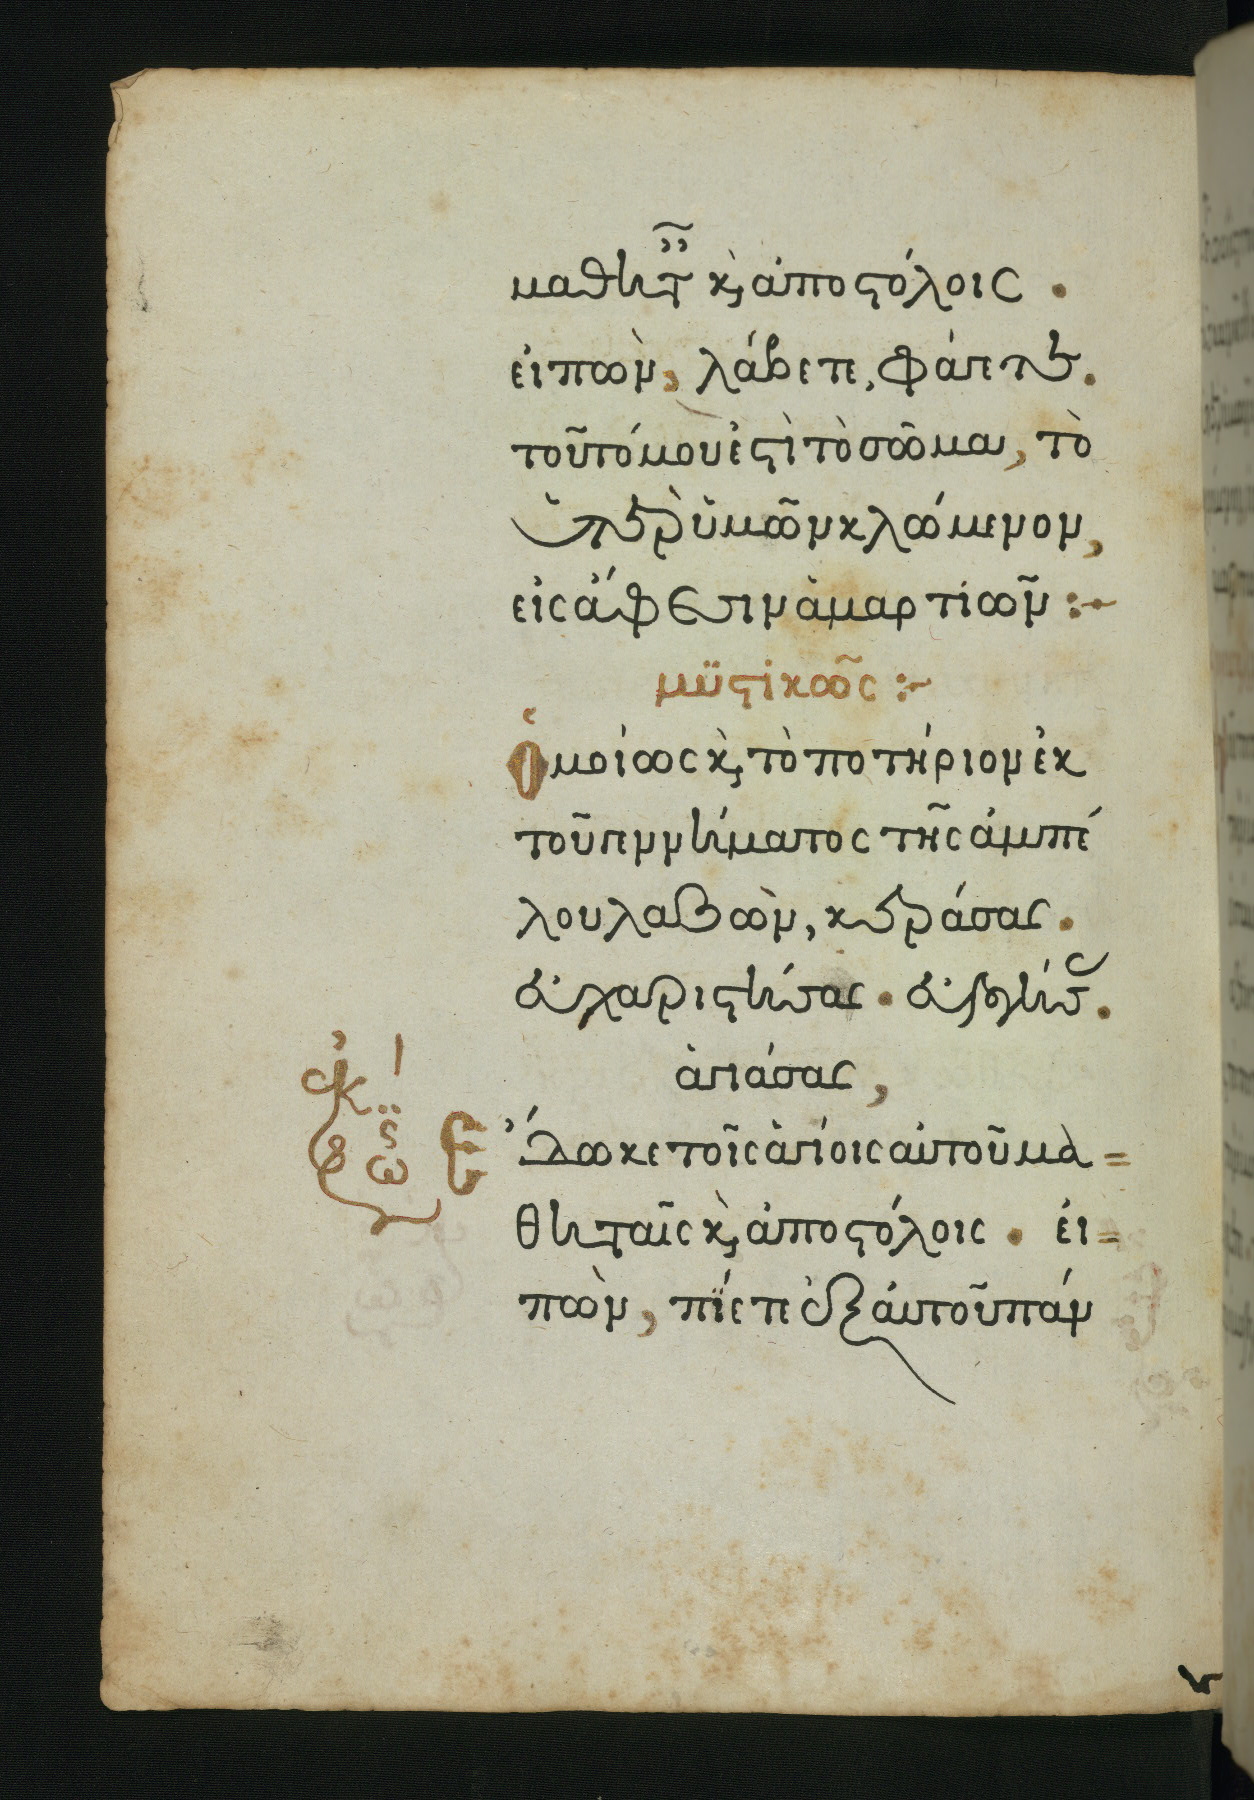 μαθητ κὶ ἀποστόλοις.
εἰπὼν, λάβετε, φάγετε.
τοῦτό μου ἐστὶ τὸ σῶμα, τὸ
ὑπὲρ ὑμῶν κλώμενον,
εἰς ἄφεσιν ἁμαρτιῶν :~
μϋστικῶς :~
Ὁμοίως κὶ τὸ ποτήριον ἐκ
τοῦ γεννήματος τῆς ἀμπέ
λου λαβὼν, κεράσας.
εὐχαριστήσας. εὐλογήσ.
ἁγιάσας,
Ἔδωκε τοῖς ἁγίοις αὐτοῦ μα=
θηταῖς κὶ ἀποστόλοις. εἰ=
πὼν, πίετε ἐξ αὐτοῦ πάν